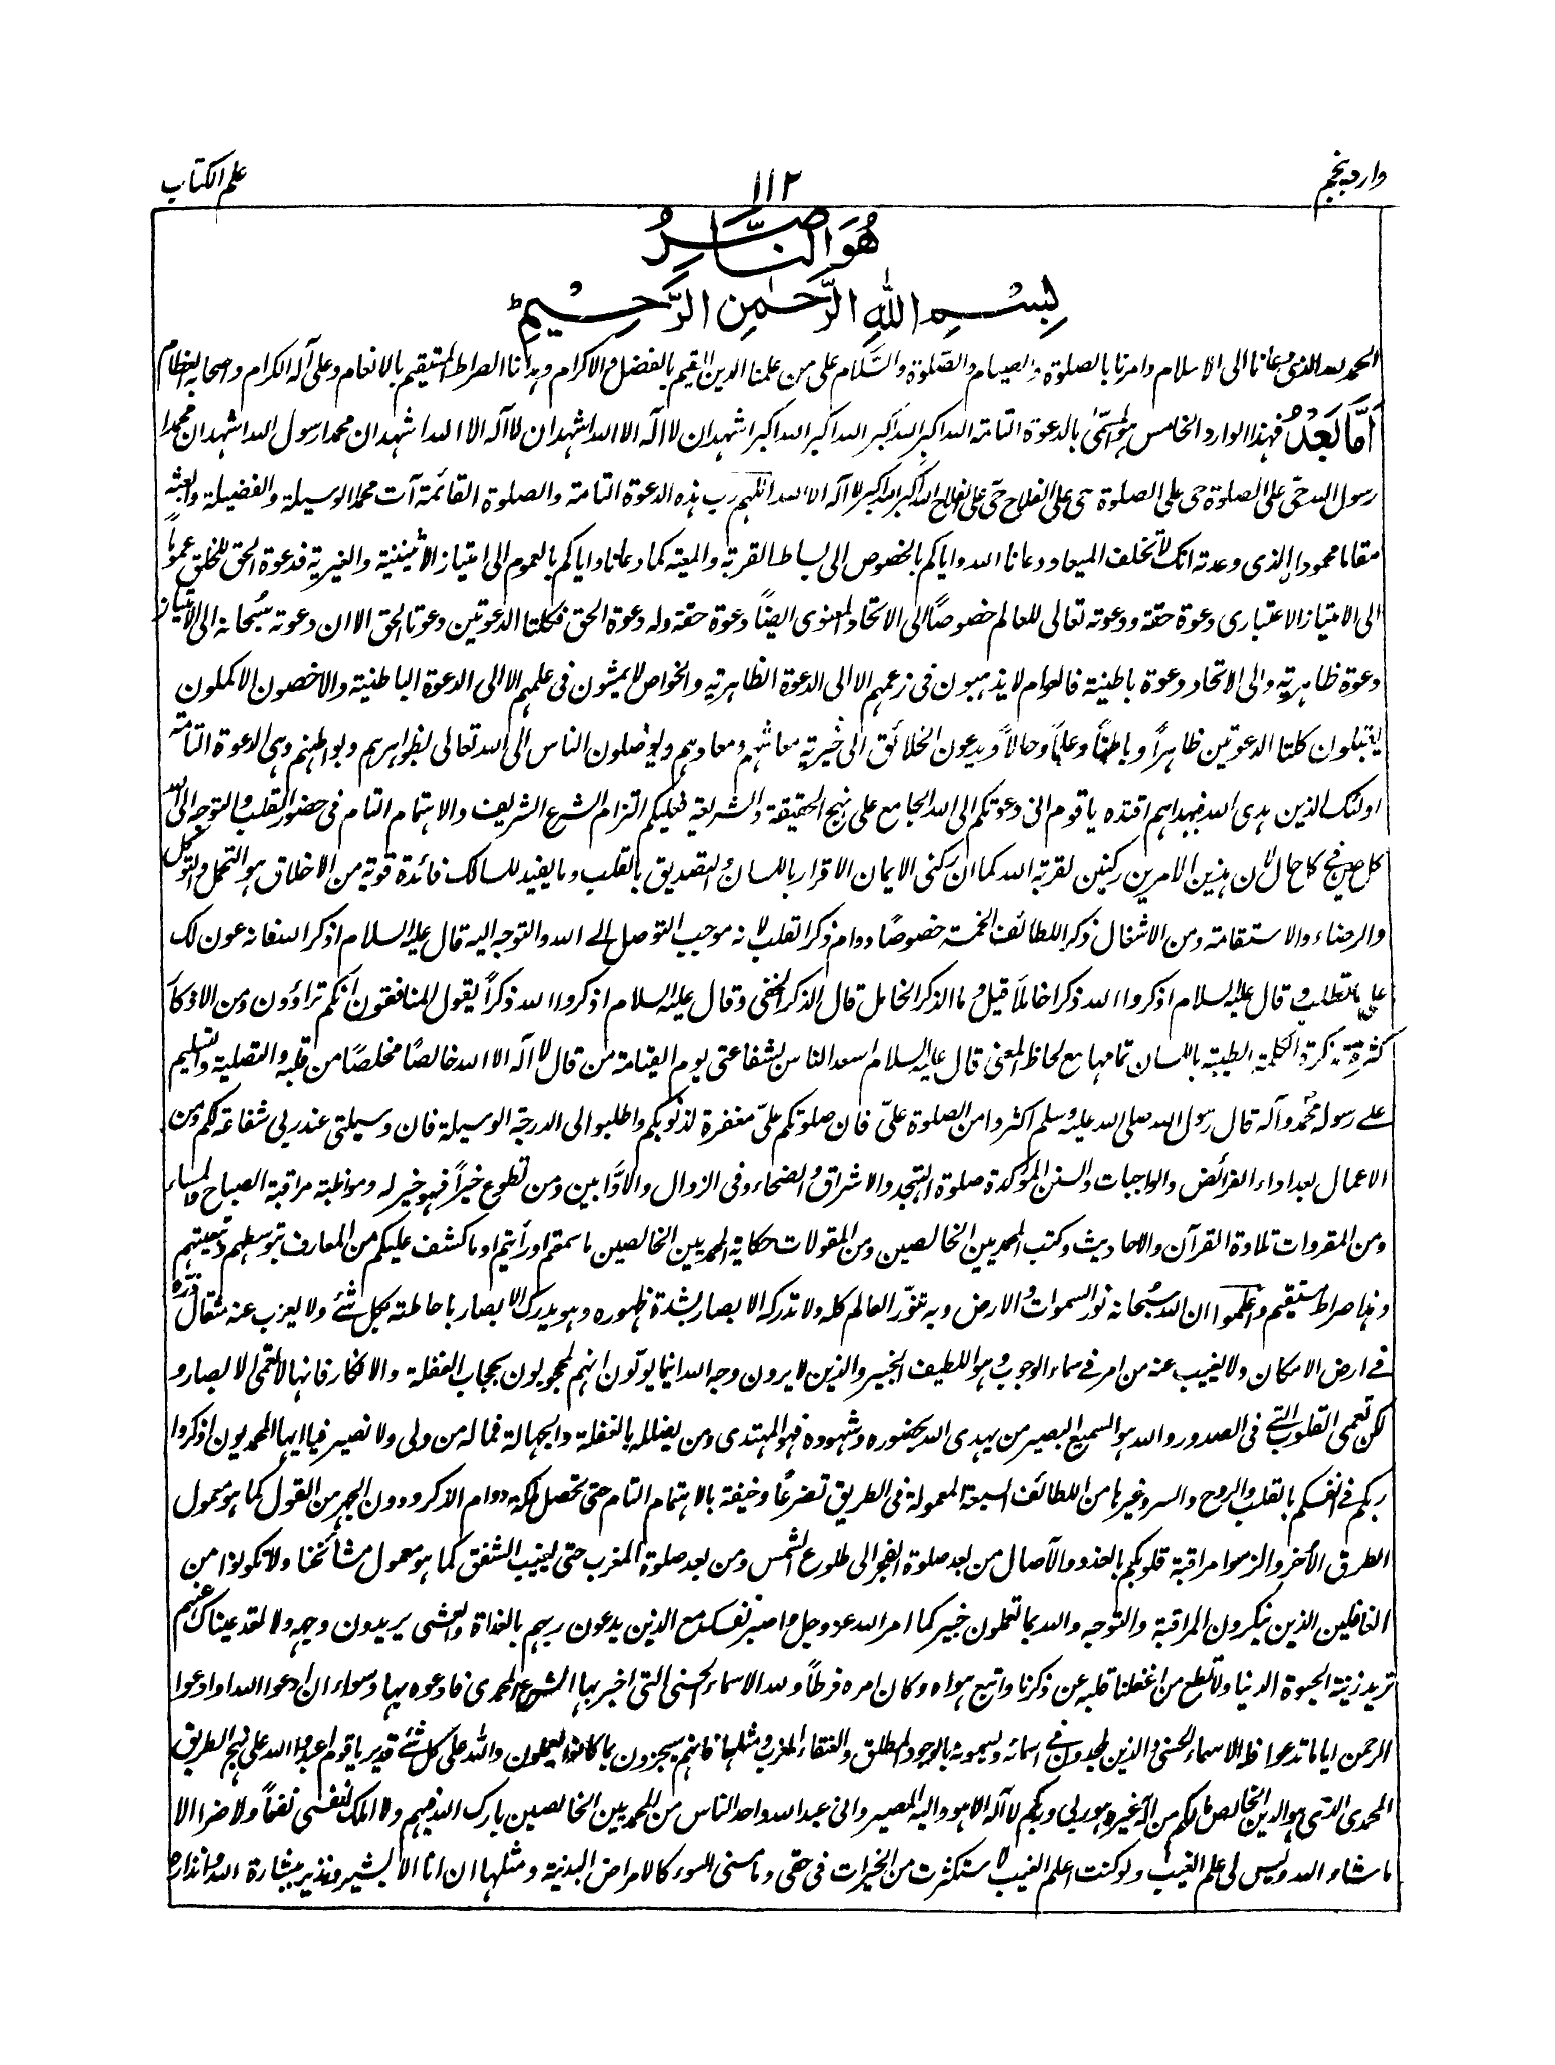 وارد پنجم
۱۱۲
علم الکتاب
هُوَ النَّاصِرُ
بِسْمِ اللهِ الرَّحْمٰنِ الرَّحِيْمِ ط
الحمد لله الذی دعانا الی الاسلام وامرنا بالصلوة والصیام والصلوة والسَّلام علی من علمنا الدین القیم بالفضل والاکرام وهدانا الصراط المستقیم بالانعام وعلی آله الکرام واصحابه العظام
اَمَّا بَعْدُ فهذا الوارد الخامس هو المسمّٰی بالدعوة التامة الله اکبر الله اکبر الله اکبر الله اکبر اشهد ان لا آله الا الله اشهد ان لا آله الا الله اشهد ان محمدا رسول الله اشهد ان محمدا
رسول الله حیّ علی الصلوة حی علی الصلوة حی علی الفلاح حیّ علی الفلاح الله اکبر الله اکبر لا آله الا الله اللهم رب هذه الدعوة التامة والصلوة القائمة آت محمدا الوسیلة والفضیلة وابعثه
مقاما محمودا الذی وعدته انک لا تخلف المیعاد ودعانا الله وایاکم بالخصوص الی بساط القربة والمعیة کما دعانا وایاکم بالعموم الی امتیاز الاثنینیة والغیریة فدعوة الحق للخلق عموماً
الی الامتیاز الاعتباری دعوة حقة ودعوته تعالی للعالم خصوصاً الی الاتحاد المعنوی ایضاً دعوة حقة وله دعوة الحق فکلتا الدعوتین دعوتا الحق الا ان دعوته سُبحانه الی الامتیاز
دعوة ظاهریة والی الاتحاد دعوة باطنیة فالعوام لا یذهبون فی زعمهم الا الی الدعوة الظاهریة والخواص لا یمشون فی علمهم الا الی الدعوة الباطنیة والاخصون الاکملون
یقبلون کلتا الدعوتین ظاهراً وباطناً وعلماً وحالاً ویدعون الخلائق الی خیریة معاشهم ومعادهم ویوصلون الناس الی الله تعالی بظواهرهم وبواطنهم وهی الدعوة التامة
اولئک الذین هدی الله فبهداهم اقتده یا قوم انی دعوتکم الی الله الجامع علی نهج الحقیقة والشریعة فعلیکم التزام الشرع الشریف والاهتمام التام فی حضور القلب والتوجه الی الله
کل حین کل حال لان هذین الامرین رکنین لقربة الله کما ان رکنی الایمان الاقرار باللسان والتصدیق بالقلب وما یفید للسالک فائدة قویة من الاخلاق هو التحمل والتوکل
والرضاء والاستقامة ومن الاشغال ذکر اللطائف الخمسة خصوصاً دوام ذکر القلب لانه موجب التوصل الی الله والتوجه الیه قال علیه السلام اذکر الله فانه عون لک
علی ما تطلب وقال علیه السلام اذکروا الله ذکرا خاملاً قیل وما الذکر الخامل قال الذکر الخفی وقال علیه السلام اذکروا الله ذکراً یقول المنافقون انکم تراؤون ومن الاذکار
کثرة الکلمة الطیبة باللسان تمامها مع لحاظ المعنی قال علیه السلام اسعد الناس بشفاعتی یوم القیامة من قال لا آله الا الله خالصًا مخلصًا من قلبه والتصلیة والتسلیم
علی رسوله محمد وآله قال رسول الله صلی الله علیه وسلم اکثروا من الصلوة علیّ فان صلوتکم علیّ مغفرة لذنوبکم واطلبوا لی الدرجة الوسیلة فان وسیلتی عند ربی شفاعة لکم ومن
الاعمال بعد اداء الفرائض والواجبات والسنن المؤکدة صلوة التهجد والاشراق والضحاء وفی الزوال والاوّابین ومن تطوع خیراً فهو خیر له ومواظبة مراقبة الصباح والمساء
ومن المقروات تلاوة القرآن والاحادیث وکتب المحمدیین الخالصین ومن المقولات حکایة المحمدیین الخالصین ما سمعتم او رأیتم او ما کشف علیکم من المعارف بتوسلهم وتبعیتهم
وهذا صراط مستقیم واعلموا ان الله سُبحانه نور السموات والارض وبه تنوّر العالم کله ولا تدرکه الابصار بشدة ظهوره وهو یدرک الابصار باحاطته بکل شئ ولا یعزب عنه مثقال ذرة
فی ارض الامکان ولا یغیب عنه من امر فی سماء الوجوب وهو اللطیف الخبیر والذین لا یرون وجه الله اینما یولّون انهم لمحجوبون بحجاب الغفلة والانکار فانها لا تعمی الابصار و
لکن تعمی القلوب التی فی الصدور والله هو السمیع البصیر من یهدی الله بحضوره وشهوده فهو المهتدی ومن یضلله بالغفلة والجهالة فما له من ولی ولا نصیر فیا ایها المحمدیون اذکروا
ربکم فی انفسکم بالقلب والروح والسر وغیرها من اللطائف السبعة المعمولة فی الطریق تضرعاً وخیفة بالاهتمام التام حتی تحصل ملکة دوام الذکر ودون الجهر من القول کما هو معمول
الطرق الأخر والزموا مراقبة قلوبکم بالغدو والآصال من بعد صلوة الفجر الی طلوع الشمس ومن بعد صلوة المغرب حتی یغیب الشفق کما هو معمول مشائخنا ولا تکونوا من
الغافلین الذین ینکرون المراقبة والتوجه والله بما تعملون خبیر کما امر الله عز وجل واصبر نفسک مع الذین یدعون ربهم بالغداة والعشی یریدون وجهه ولا تعد عیناک عنهم
ترید زینة الحیوة الدنیا ولا تطع من اغفلنا قلبه عن ذکرنا واتبع هواه وکان امره فرطاً ولله الاسماء الحسنی التی اخبر بها الشرع المحمدی فادعوه بها وسواء ان ادعوا الله او ادعوا
الرحمن ایاما تدعوا فله الاسماء الحسنی والذین یلحدون فی اسمائه ویسمونه بالوجود المطلق والعنقاء المغرب ومثلها فانهم سیجزون بما کانوا یعملون والله علی کل شئ قدیر یا قوم اعبدوا الله علی نهج الطریق
المحمدی الذی هو الدین الخالص مالکم من آله غیره هو ربی وربکم لا آله الا هو والیه المصیر وانی عبد الله واحد الناس من المحمدیین الخالصین بارک الله فیهم ولا املک لنفسی نفعاً ولا ضرا الا
ما شاء الله ولیس لی علم الغیب ولو کنت اعلم الغیب لاستکثرت من الخیرات فی حقی وما مسنی السوء کالامراض البدنیة ومثلها ان انا الا بشیر ونذیر ببشارة الله وانذاره